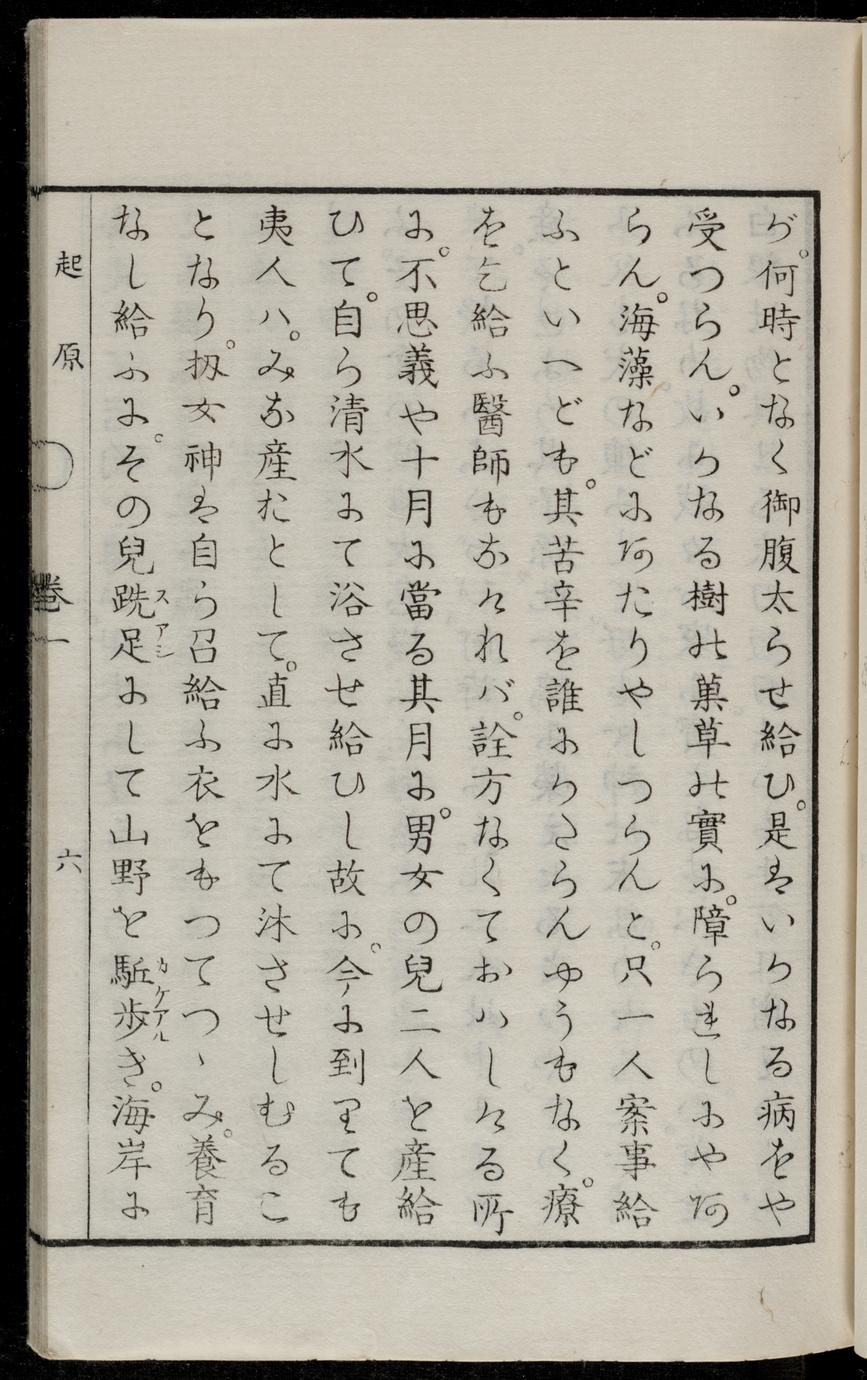 が。何時となく御腹太らせ給ひ。是はいかなる病をや
受つらん。いかなる樹の菓草の實に。障られしにや何
らん。海藻などに何たりやしつらんと。只一人案事給
ふといへども。其苦辛を誰にかさらんやうもなく。療
を乞給ふ醫師もなけれバ。詮方なくておハしける所
に。不思義や十月に當る其月に。男女の兒二人を産給
ひて。自ら清水にて浴させ給ひし故に。今に到りても
夷人ハ。みな産たとして。直に水にて沐させしむるこ
となり。扨女神は自ら召給ふ衣をもつてつゝみ。養育
なし給ふに。その兒跣足スアシにして山野を駈歩カケアルき。海岸に
起原
卷一
六